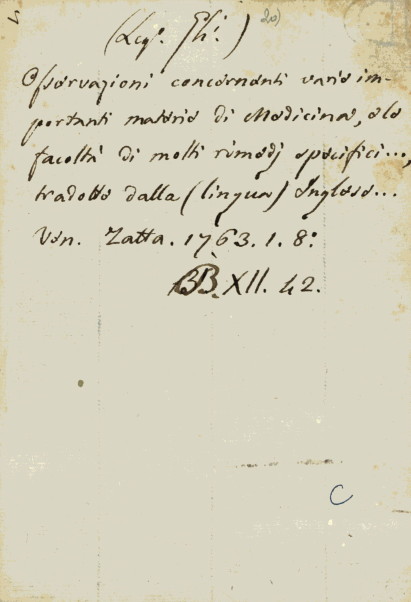 20)
Osservazioni concernenti varie im-
portanti materie di Medicina, e le
facoltà di molti rimedj specifici...,
tradotte dalla (lingua) Inglese...
Ven. Zatta. 1763. 1. 8:
BB. XII. 42.
C